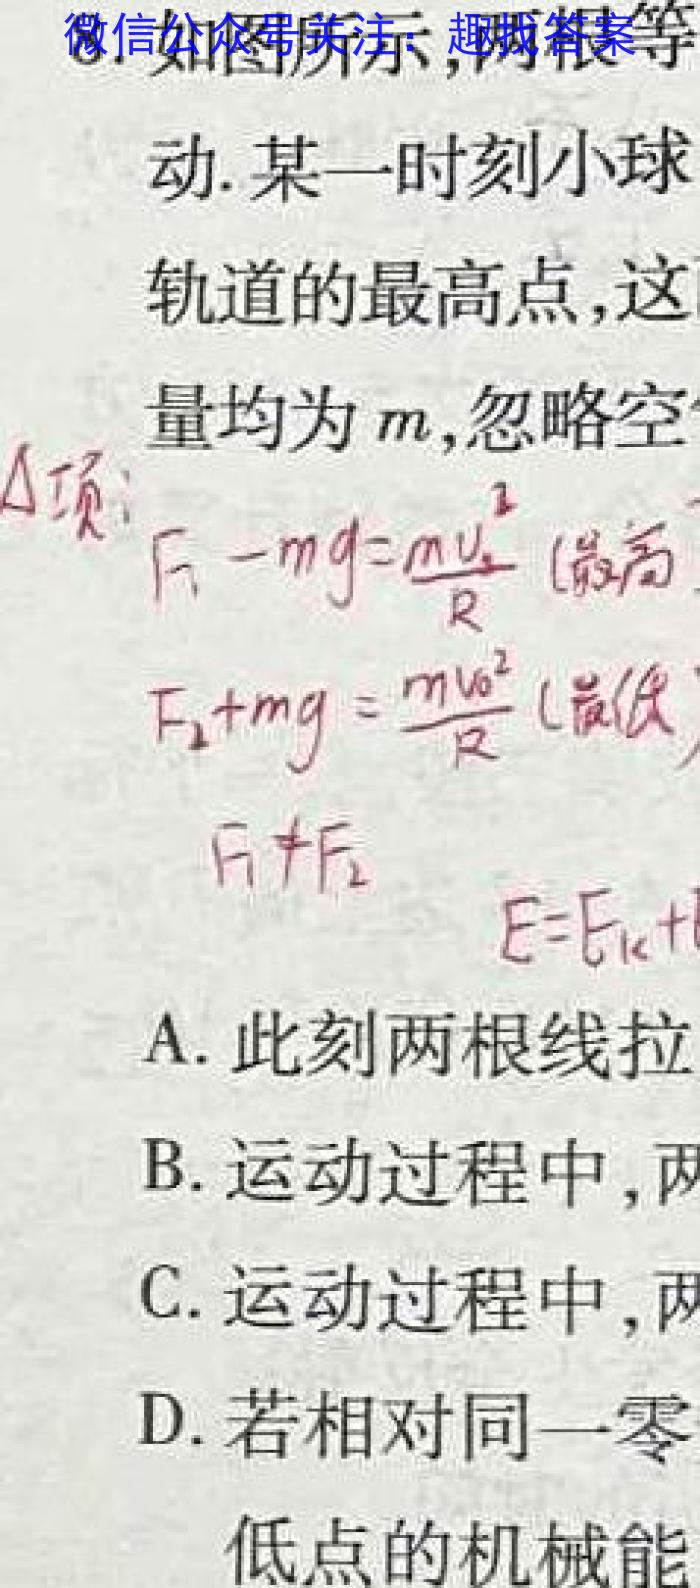 微信公众号关注：趣找答案
8. 如图所示,两根等
动. 某一时刻小球
轨道的最高点,这
量均为 m,忽略空
A项:
F₁ -mg=mv₁²/R (最高
F₂+mg = mv₀²/R (最低)
F₁≠F₂
E=Eₖ+
A. 此刻两根线拉
B. 运动过程中,两
C. 运动过程中,两
D. 若相对同一零
低点的机械能